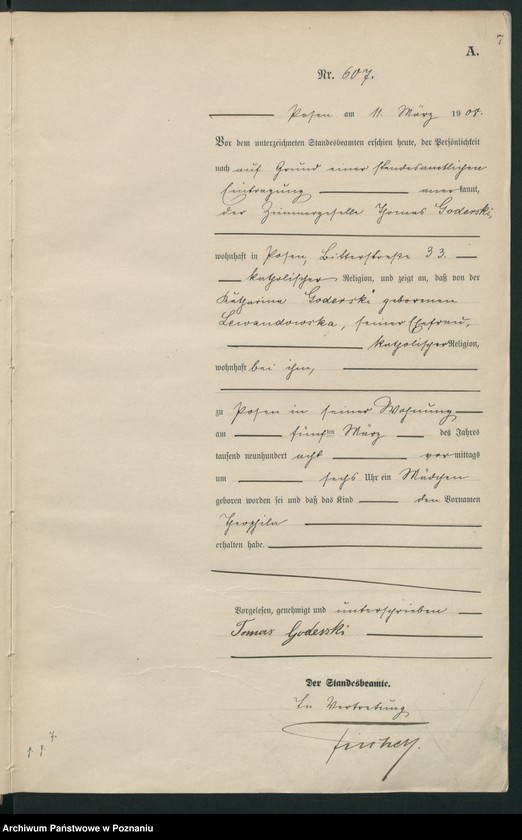 7
A.
Nr. 607.
Posen am 11. März 1908.
Vor dem unterzeichneten Standesbeamten erschien heute, der Persönlichkeit
nach auf Grund einer standesamtlichen
Eintragung anerkannt,
der Zimmergeselle Thomas Goderski,
wohnhaft in Posen, Bitterstraße 33.
katholischer Religion, und zeigt an, daß von der
Katharina Goderski geborenen
Lewandowska, seiner Ehefrau,
katholischer Religion,
wohnhaft bei ihm,
zu Posen in seiner Wohnung
am fünften März des Jahres
tausend neunhundert acht vormittags
um sechs Uhr ein Mädchen
geboren worden sei und daß das Kind den Vornamen
Theophila
erhalten habe.
Vorgelesen, genehmigt und unterschrieben
Tomas Goderski
Der Standesbeamte.
In Vertretung
7.
Archiwum Państwowe w Poznaniu